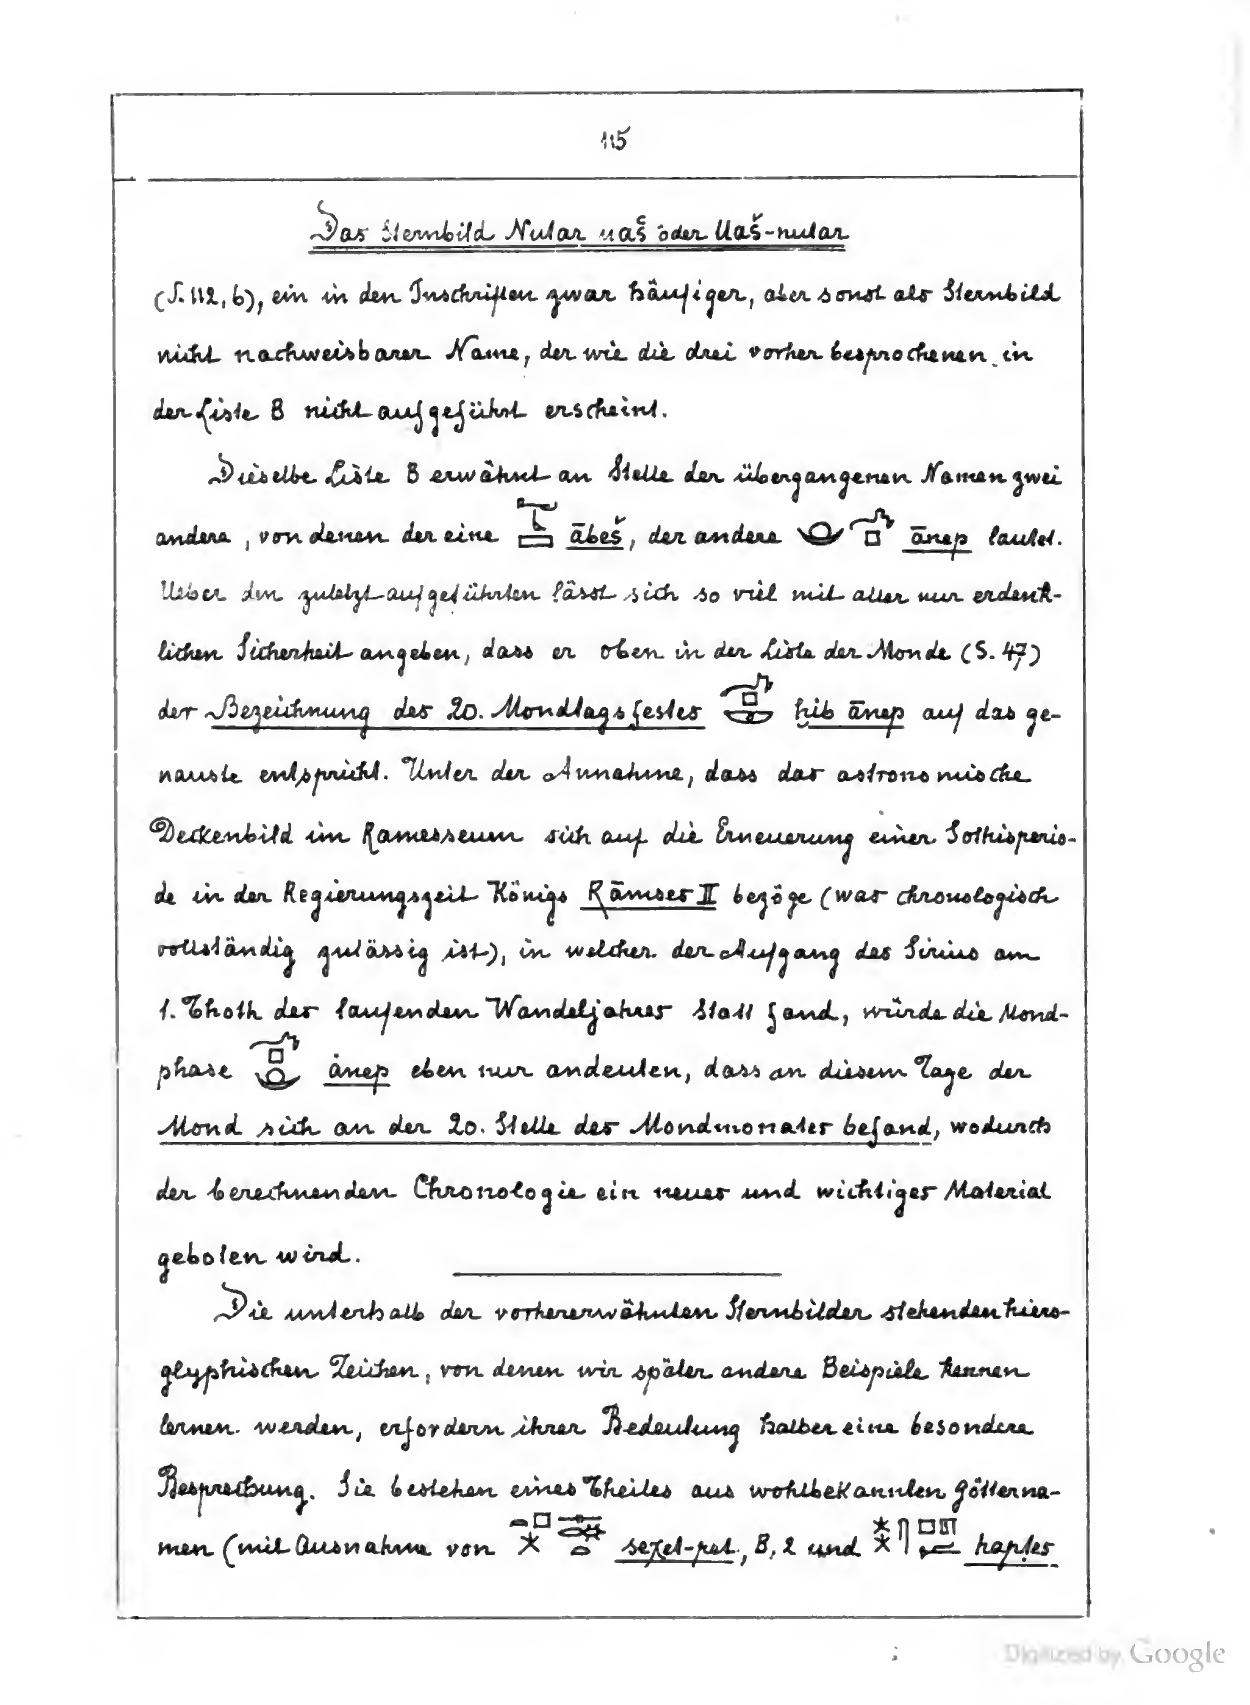 115
Das Sternbild Nutar uaš oder Uaš-nutar
(S. 112, b), ein in den Inschriften zwar häufiger, aber sonst als Sternbild
nicht nachweisbarer Name, der wie die drei vorher besprochenen in
der Liste B nicht aufgeführt erscheint.
Dieselbe Liste B erwähnt an Stelle der übergangenen Namen zwei
andere, von denen der eine ābeš, der andere ānep lautet.
Ueber den zuletzt aufgeführten lässt sich so viel mit aller nur erdenk-
lichen Sicherheit angeben, dass er oben in der Liste der Monde (S. 47)
der Bezeichnung des 20. Mondtagsfestes ḥib ānep auf das ge-
nauste entspricht. Unter der Annahme, dass das astronomische
Deckenbild im Ramesseum sich auf die Erneuerung einer Sothisperio-
de in der Regierungszeit Königs Rāmses II bezöge (was chronologisch
vollständig zulässig ist), in welcher der Aufgang des Sirius am
1. Thoth des laufenden Wandeljahres statt fand, würde die Mond-
phase ànep eben nur andeuten, dass an diesem Tage der
Mond sich an der 20. Stelle des Mondmonates befand, wodurch
der berechnenden Chronologie ein neues und wichtiges Material
geboten wird.
Die unterhalb der vorhererwähnten Sternbilder stehenden hiero-
glyphischen Zeichen, von denen wir später andere Beispiele kennen
lernen werden, erfordern ihrer Bedeutung halber eine besondere
Besprechung. Sie bestehen eines Theiles aus wohlbekannten Götterna-
men (mit Ausnahme von seχet-pet, B, 2 und haptes
Digitized by Google